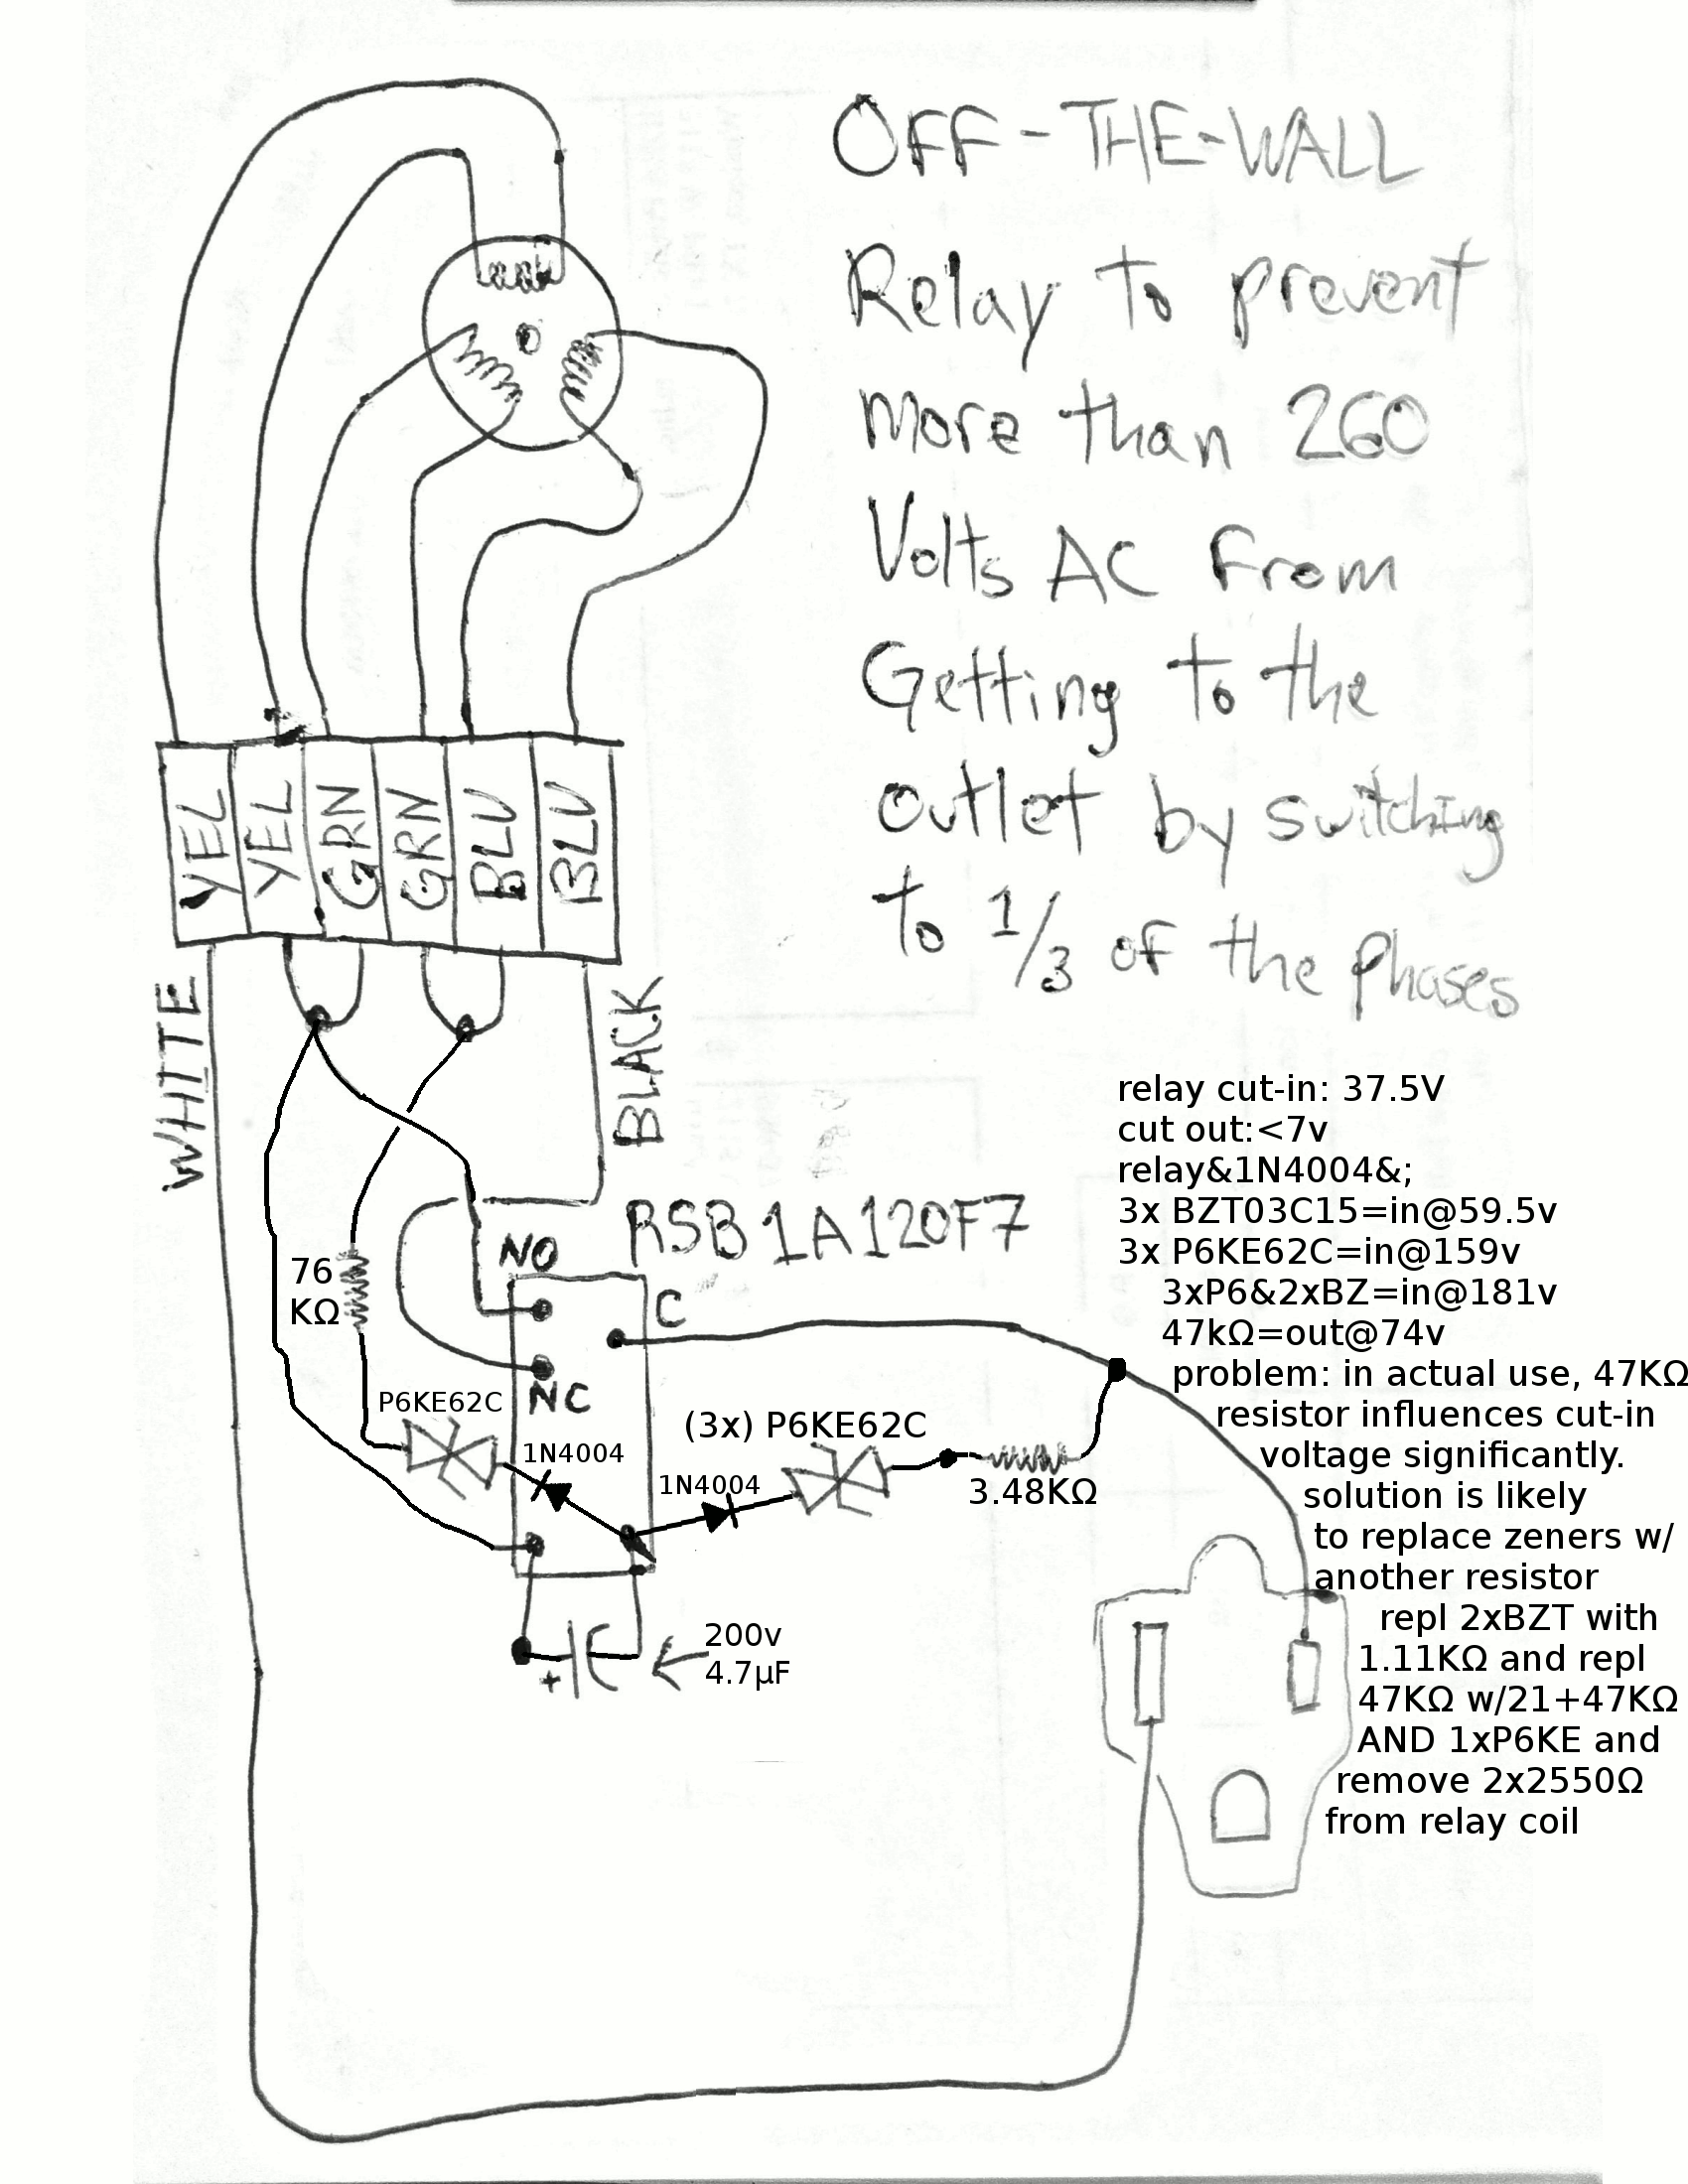 OFF-THE-WALL
Relay to prevent
more than 260
Volts AC from
Getting to the
outlet by switching
to 1/3 of the phases
YEL
YEL
GRN
GRN
BLU
BLU
WHITE
BLACK
relay cut-in: 37.5V
cut out:<7v
relay&1N4004&;
3x BZT03C15=in@59.5v
3x P6KE62C=in@159v
3xP6&2xBZ=in@181v
47kΩ=out@74v
problem: in actual use, 47KΩ
resistor influences cut-in
voltage significantly.
solution is likely
to replace zeners w/
another resistor
repl 2xBZT with
1.11KΩ and repl
47KΩ w/21+47KΩ
AND 1xP6KE and
remove 2x2550Ω
from relay coil
RSB1A120F7
NO
C
76
KΩ
NC
P6KE62C
(3x) P6KE62C
1N4004
1N4004
3.48KΩ
+
200v
4.7µF